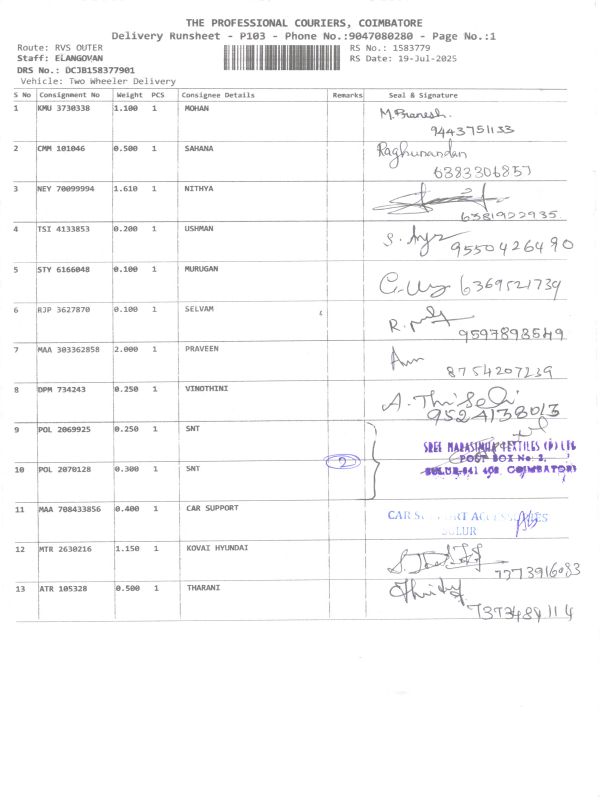 THE PROFESSIONAL COURIERS, COIMBATORE
Delivery Runsheet - P103 - Phone No.:9047080280 - Page No.:1
Route: RVS OUTER RS No.: 1583779
Staff: ELANGOVAN RS Date: 19-Jul-2025
DRS No.: DCJB158377901
Vehicle: Two Wheeler Delivery
S No Consignment No Weight PCS Consignee Details Remarks Seal & Signature
1 KMU 3730338 1.100 1 MOHAN M. Pranesh.
9443751133
2 CMM 101046 0.500 1 SAHANA Raghunandan
6383306857
3 NEY 70099994 1.610 1 NITHYA
6381922935
4 TSI 4133853 0.200 1 USHMAN 9550426490
5 STY 6166048 0.100 1 MURUGAN 6369521739
6 RJP 3627870 0.100 1 SELVAM
9597898549
7 MAA 303362858 2.000 1 PRAVEEN
8754207239
8 DPM 734243 0.250 1 VINOTHINI
9524138013
9 POL 2069925 0.250 1 SNT SREE NARASIMHA TEXTILES (P) LTD
POST BOX No: 2,
10 POL 2070128 0.300 1 SNT 2 SULUR-641 402, COIMBATORE
11 MAA 708433856 0.400 1 CAR SUPPORT CAR SUPPORT ACCESSORIES
SULUR
12 MTR 2630216 1.150 1 KOVAI HYUNDAI
7773916083
13 ATR 105328 0.500 1 THARANI
7373484114